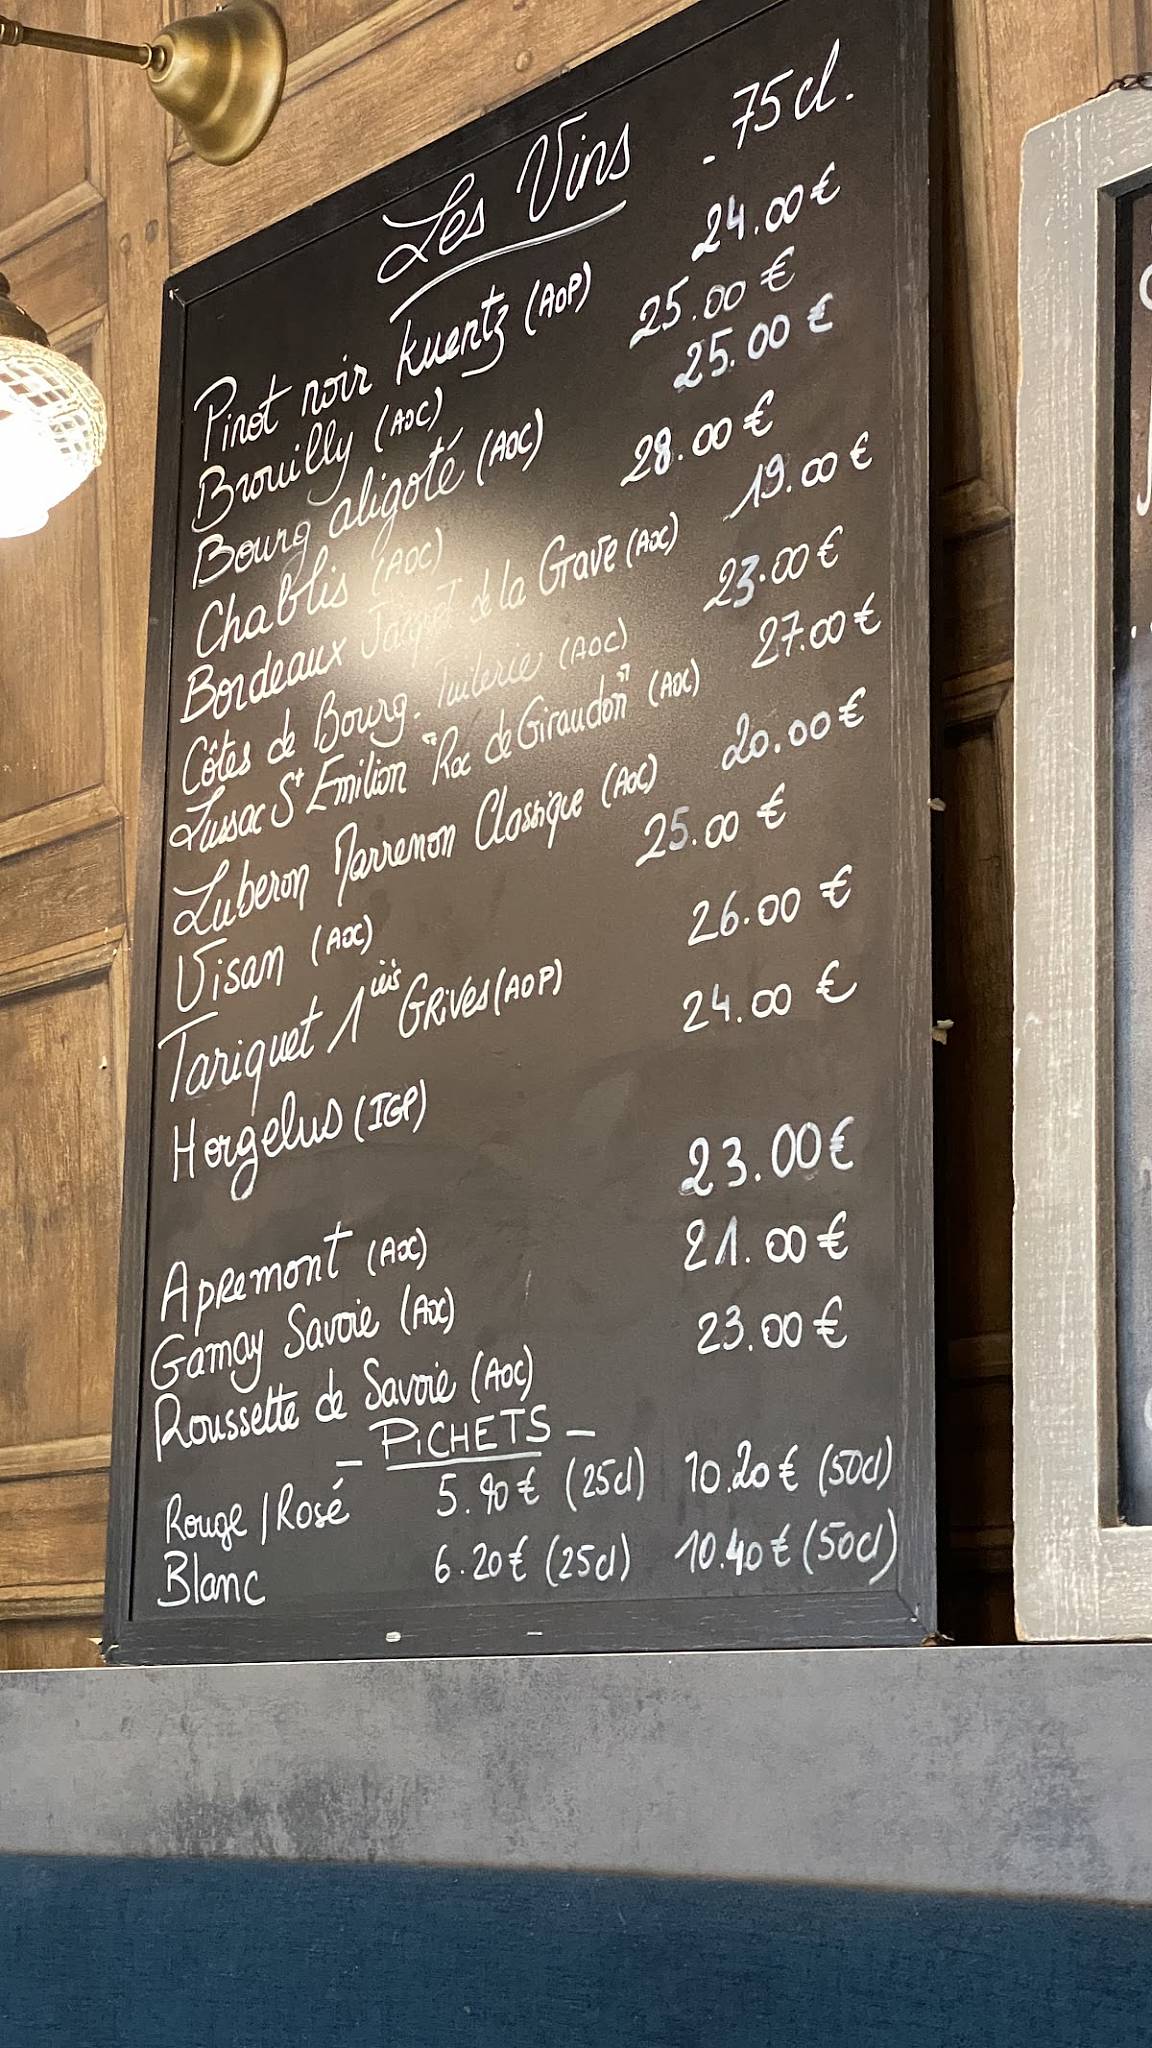 Les Vins - 75cl.
Pinot noir Kuentz (AOP) 24.00 €
Brouilly (AOC) 25.00 €
Bourg aligoté (AOC) 25.00 €
Chablis (AOC) 28.00 €
Bordeaux Jacquot de la Grave (AOC) 19.00 €
Côtes de Bourg. Tuilerie (AOC) 23.00 €
Lussac St Emilion "Roc de Giraudon" (AOC) 27.00 €
Luberon Marrenon Classique (AOC) 20.00 €
Visan (AOC) 25.00 €
Tariquet 1ières GRIVES (AOP) 26.00 €
Horgelus (IGP) 24.00 €
APREMONT (AOC) 23.00 €
Gamay Savoie (AOC) 21.00 €
Roussette de Savoie (AOC) 23.00 €
- PICHETS -
Rouge / Rosé 5.90 € (25cl) 10.20 € (50cl)
Blanc 6.20 € (25cl) 10.40 € (50cl)